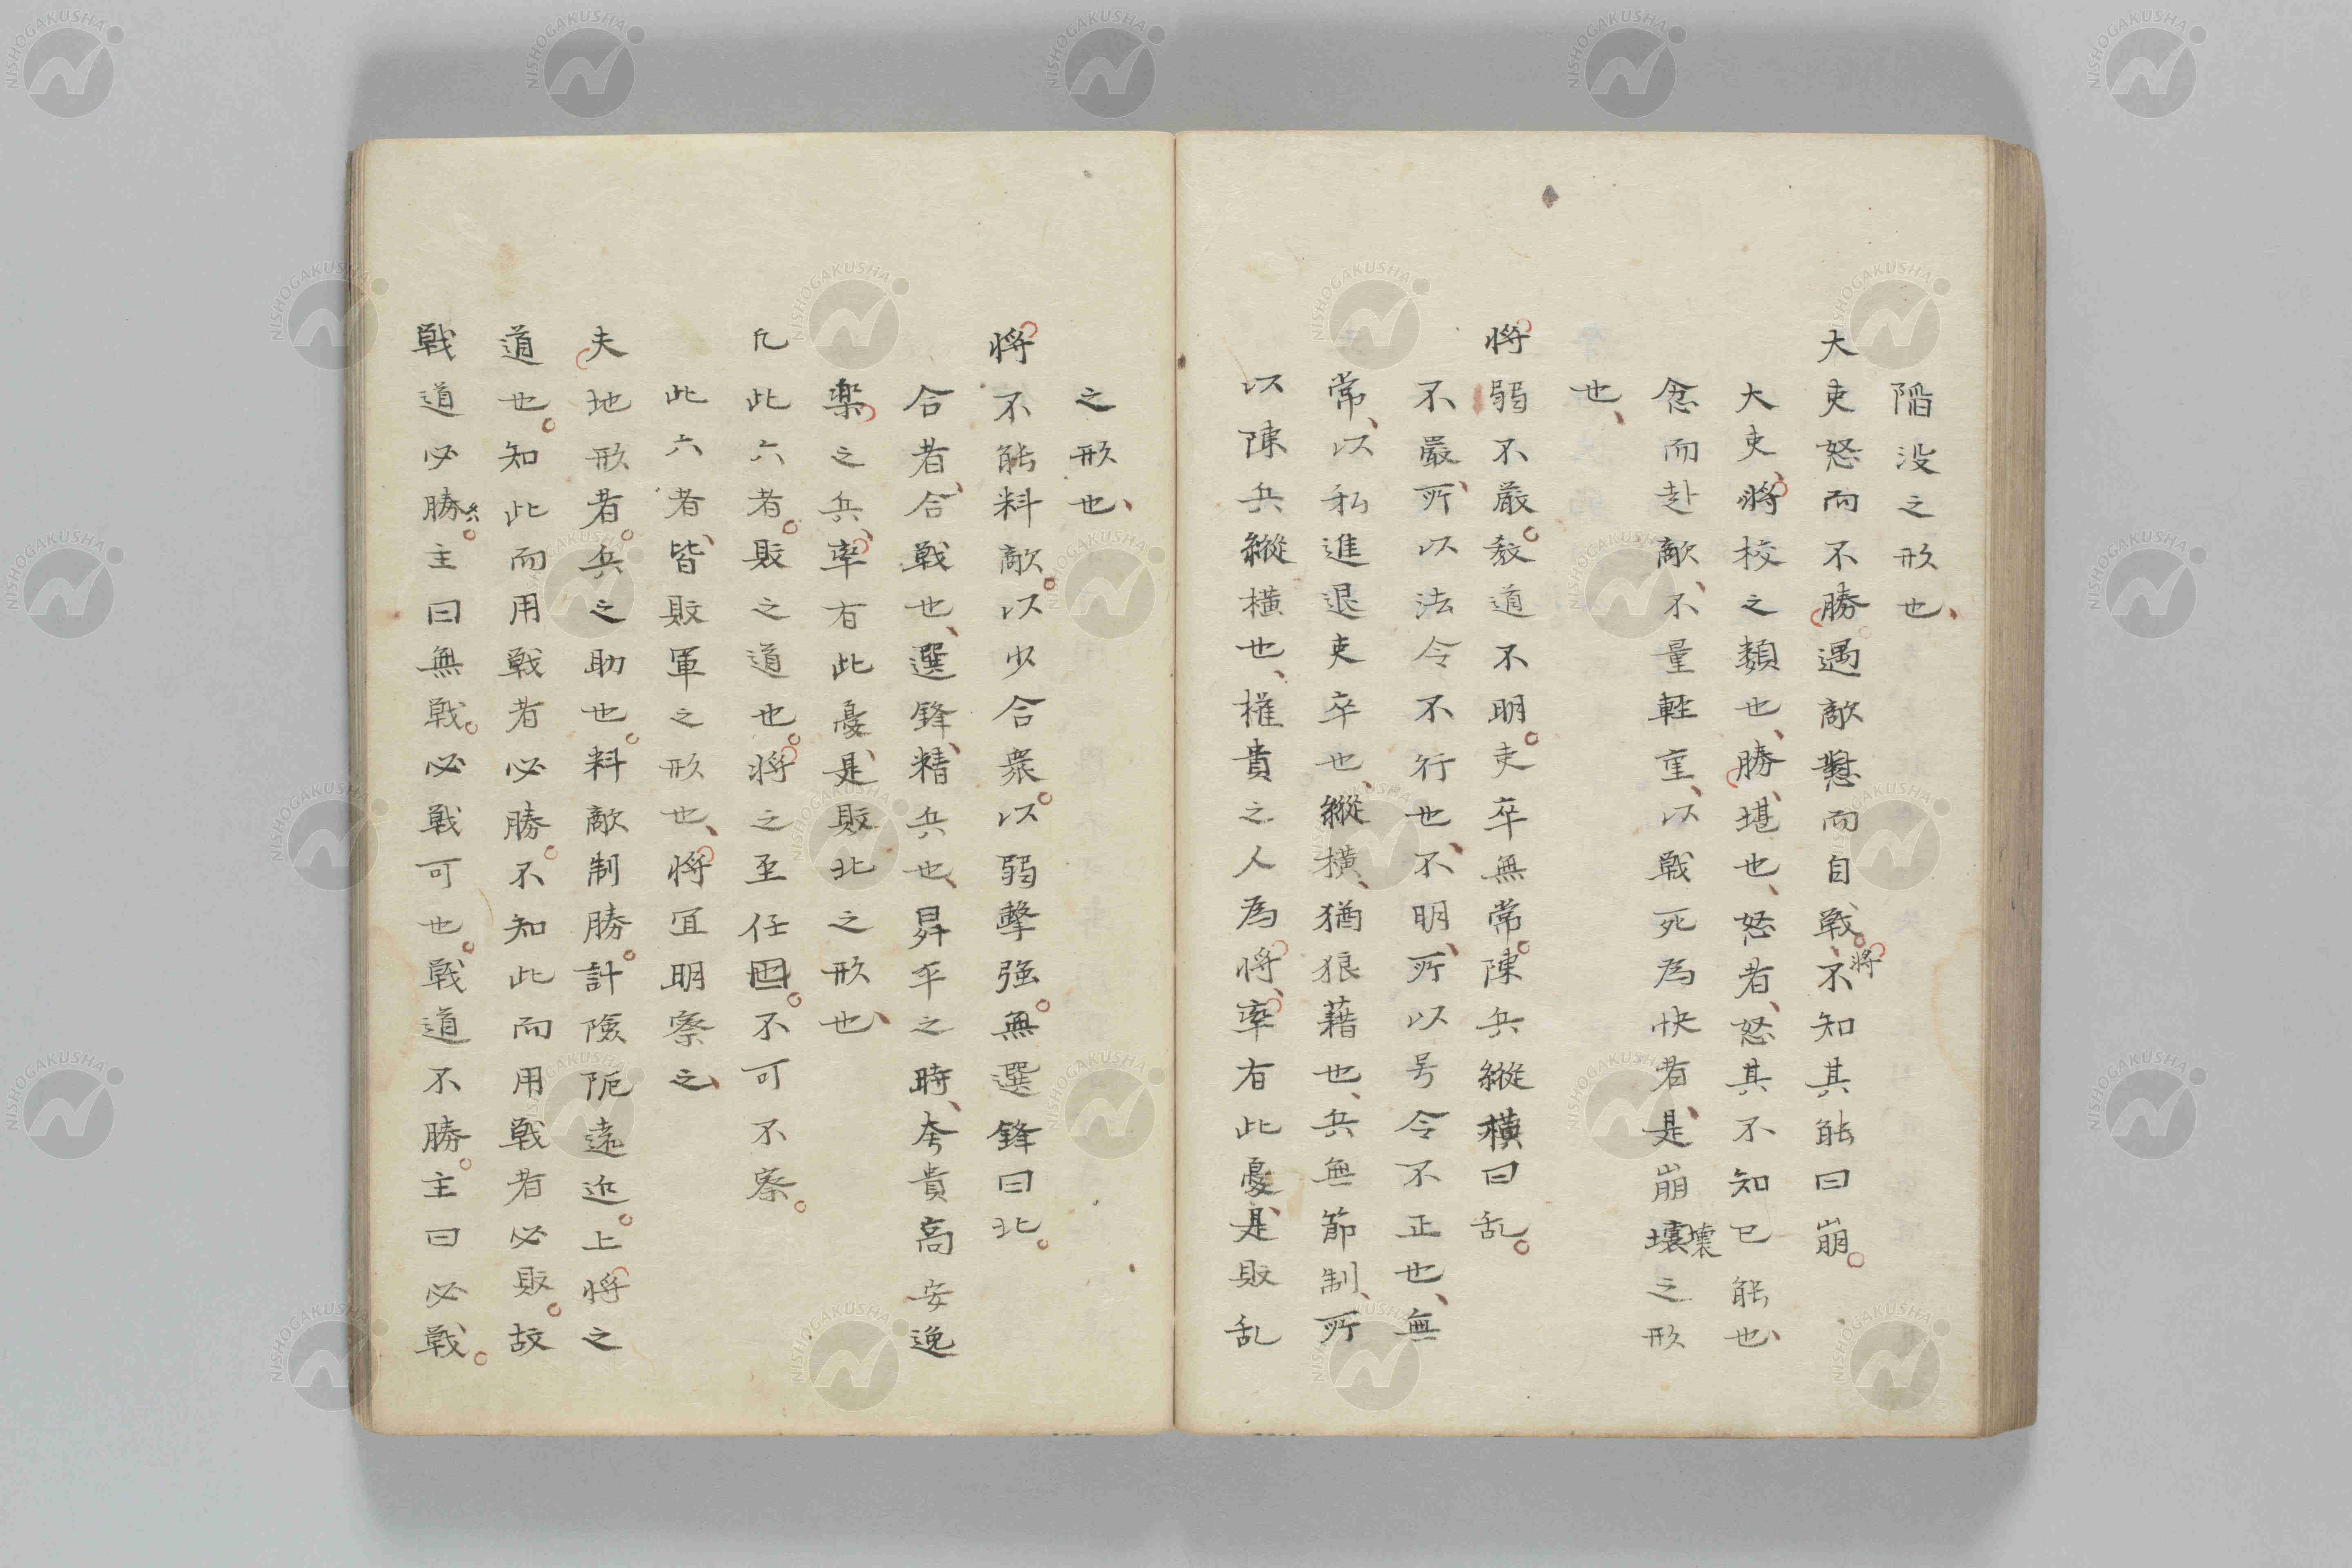 陷没之形也、
大吏怒而不勝遇敵懟而自戦。不将知其能曰崩。
大吏、将校之類也、勝、堪也、怒者、怒其不知已能也、
忿而赴敵、不量軽重、以戦死為快者、是崩壞壊之形
也、
将弱不厳。教道不明。吏卒無常。陳兵縦横曰乱。
不嚴、所以法令不行也、不明、所以号令不正也、無
常、以私進退吏卒也、縦横、猶狼藉也、兵無節制、所
以陳兵縦横也、権貴之人為将、率有此憂、是敗乱
之形也、
将不能料敵。以少合衆。以弱擊强。無選鋒曰北。
合者、合戦也、選鋒、精兵也、昇平之時、夸貴高安逸
楽之兵、率有此憂、是敗北之形也、
凡此六者。敗之道也。将之至任。不可不察。
此六者、皆敗軍之形也、将宜明察之、
夫地形者。兵之助也。料敵制勝。計險阨遠近。上将之
道也。知此而用戦者必勝。不知此而用戦者必敗。故
戦道必勝。主曰無戦。必戦可也。戦道不勝。主曰必戦。